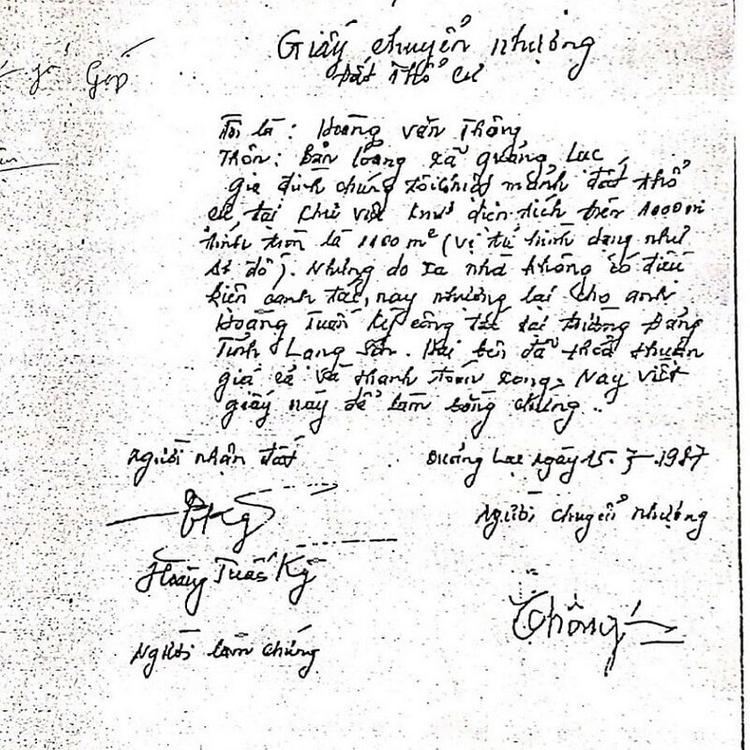 Giấy chuyển nhượng
Đất thổ cư
Tôi là : Hoàng Văn Thông
Thôn: Bản Loỏng xã Quảng Lạc
gia đình chúng tôi có mảnh đất thổ
cư tại khu vực diện tích trên 1000m
hình tròn là 1100 m² (vị trí hình dạng như
sơ đồ). Nhưng do xa nhà không có điều
kiện canh tác, nay nhường lại cho anh
Hoàng Tuấn Kỳ công tác tại trường Đảng
Tỉnh Lạng Sơn. Hai bên đã thoả thuận
giá cả và thanh toán xong. Nay viết
giấy này để làm bằng chứng..
Người nhận đất
Quảng Lạc ngày 15. 7 .1987
Người chuyển nhượng
Hoàng Tuấn Kỳ
Thông
Người làm chứng